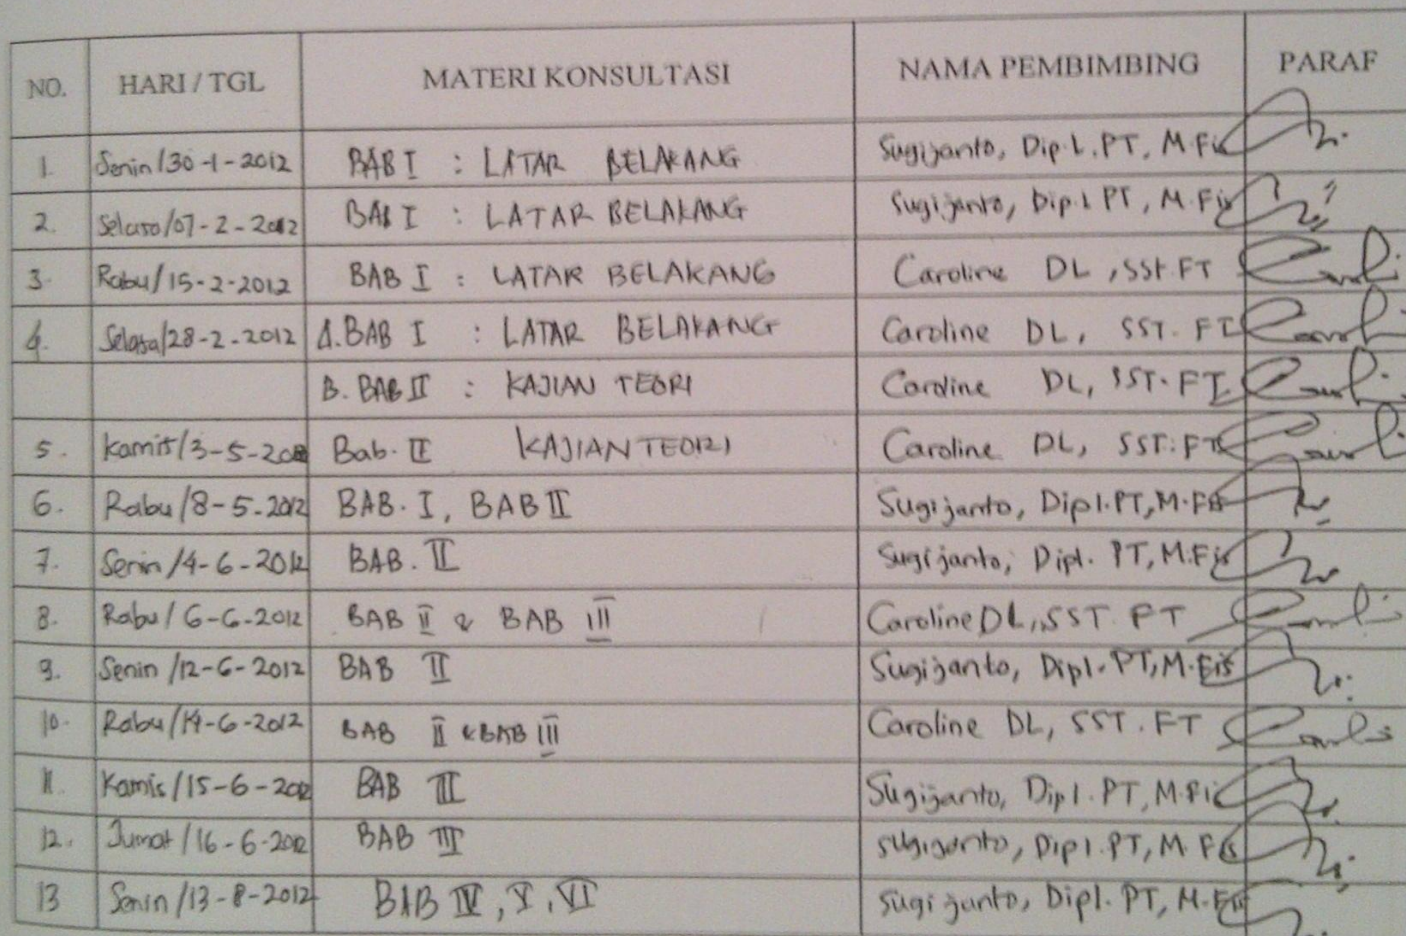 NO. HARI / TGL MATERI KONSULTASI NAMA PEMBIMBING PARAF
1. Senin/30-1-2012 BAB I : LATAR BELAKANG Sugijanto, Dip.L.PT, M.Fis
2. Selasa/07-2-2012 BAB I : LATAR BELAKANG Sugijanto, Dip.L PT, M.Fis
3. Rabu/15-2-2012 BAB I : LATAR BELAKANG Caroline DL, SSt.FT
4. Selasa/28-2-2012 A.BAB I : LATAR BELAKANG Caroline DL, SST.FT
B. BAB II : KAJIAN TEORI Caroline DL, SST.FT
5. Kamis/3-5-2012 Bab. II KAJIAN TEORI Caroline DL, SST.FT
6. Rabu/8-5-2012 BAB. I, BAB II Sugijanto, Dipl.PT, M.Fis
7. Senin/4-6-2012 BAB. II Sugijanto, Dipl. PT, M.Fis
8. Rabu/6-6-2012 BAB II & BAB III Caroline DL, SST. FT
9. Senin/12-6-2012 BAB II Sugijanto, Dipl.PT, M.Fis
10. Rabu/14-6-2012 BAB II & BAB III Caroline DL, SST.FT
11. Kamis/15-6-2012 BAB III Sugijanto, Dipl.PT, M.Fis
12. Jumat/16-6-2012 BAB III Sugijanto, Dipl.PT, M.Fis
13 Senin/13-8-2012 BAB IV, V, VI Sugijanto, Dipl. PT, M.Fis